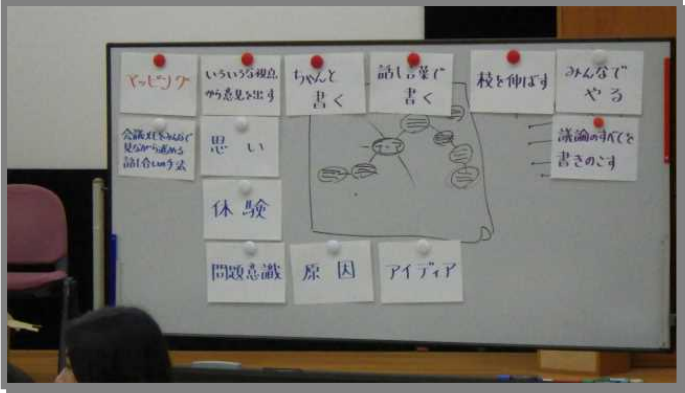 マッピング
いろいろな視点
から意見を出す
ちゃんと
書く
話し言葉で
書く
枝を伸ばす
みんなで
やる
会議メモをみんなで
見ながら進める
話し合いの手法
思い
議論のすべてを
書きのこす
体験
問題意識
原因
アイディア